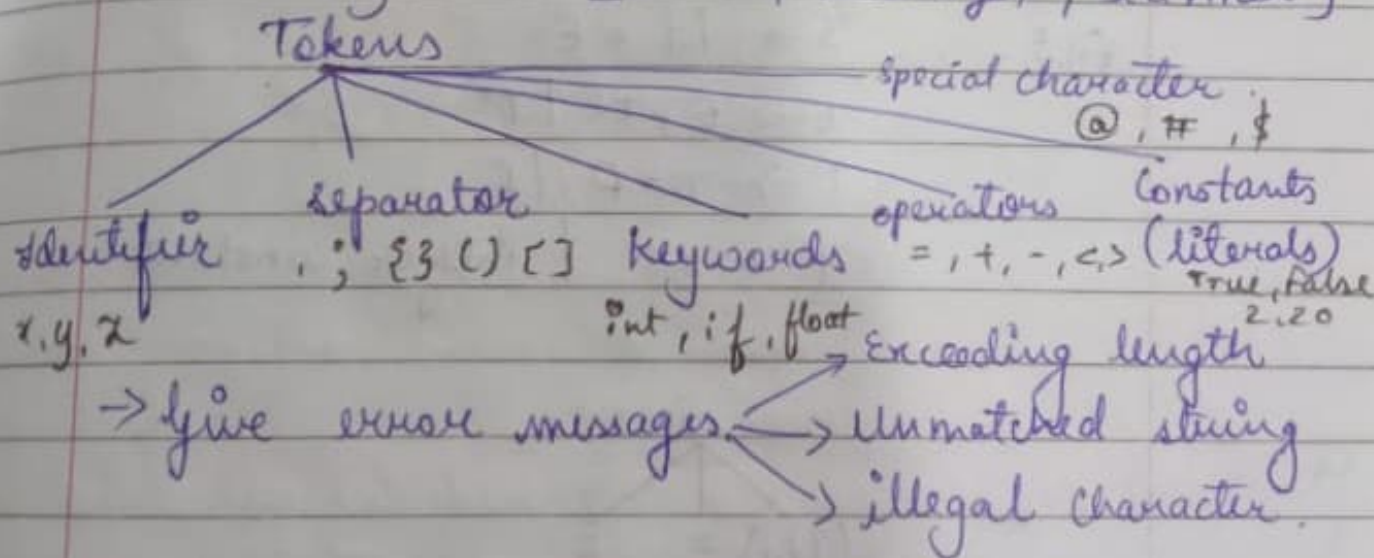 Tokens
special character
@, #, $
Identifier
separator
Keywords
operators
Constants
, ; {} () []
=, +, -, <, >
(literals)
True, False
2, 20
x, y, z
int, if, float
→ Give error messages
→ Exceeding length
→ Unmatched string
→ illegal character.